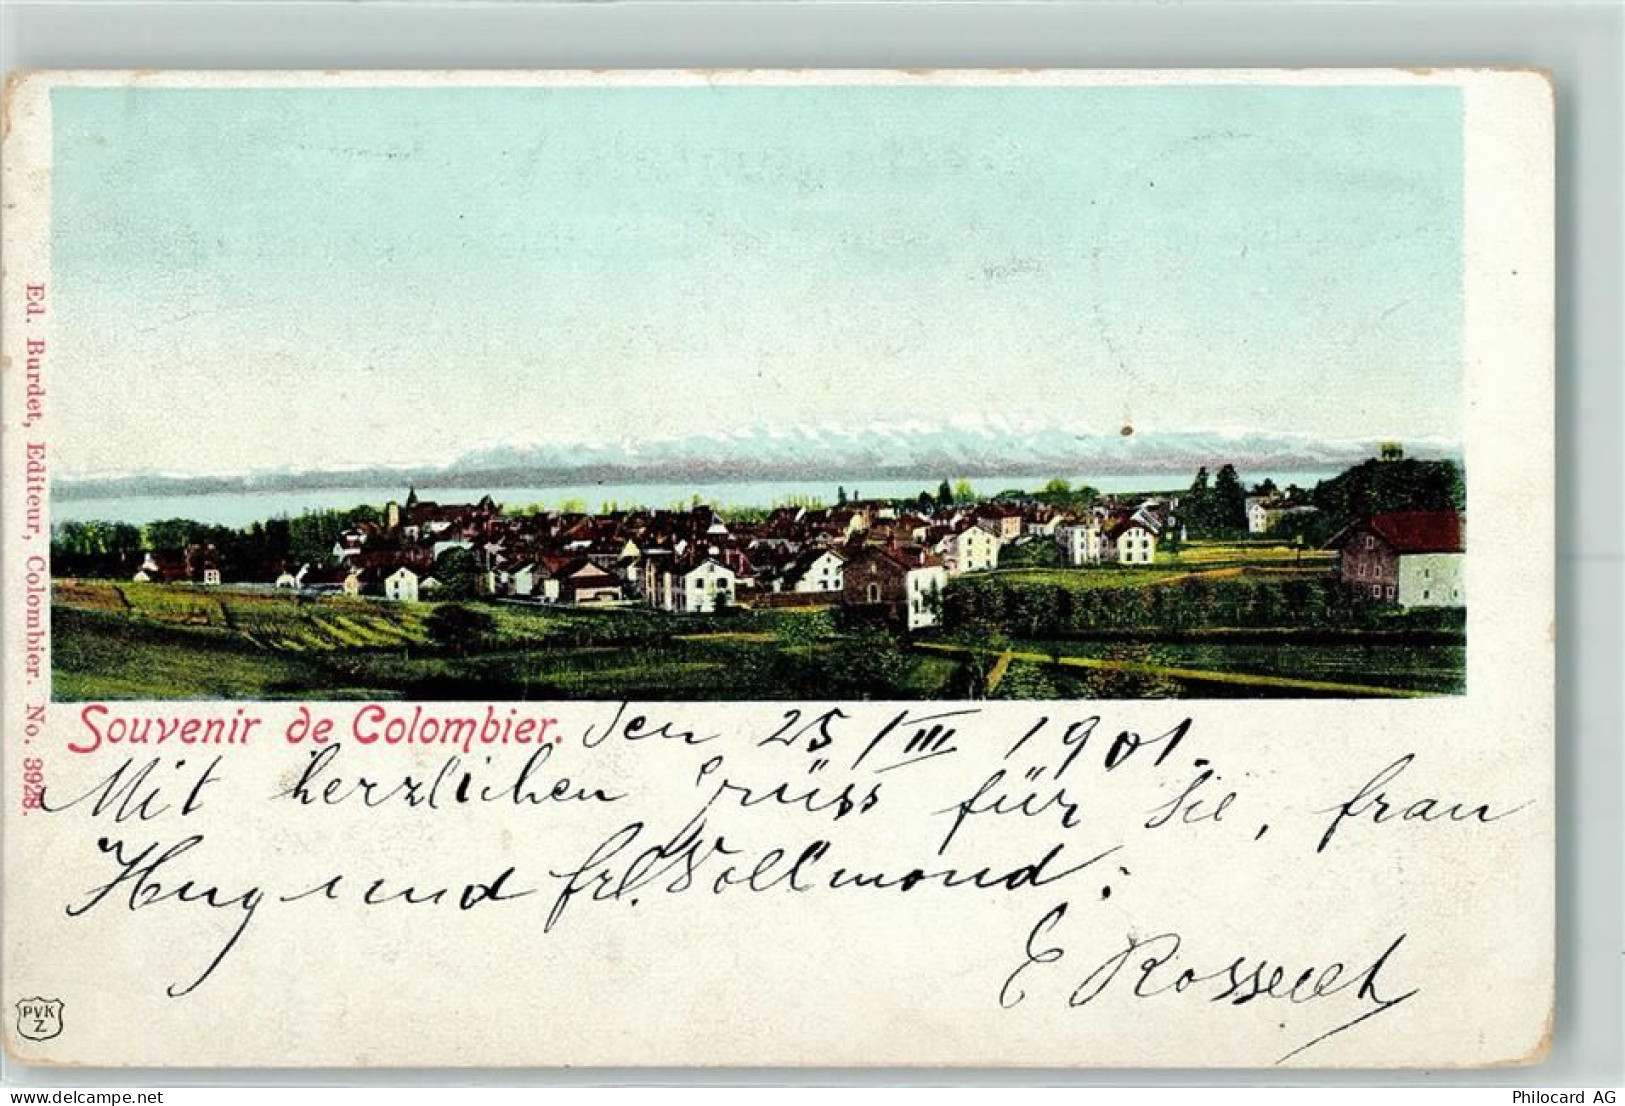 Ed. Burdet, Editeur, Colombier. No. 3928.
Souvenir de Colombier. Den 25/III/1901.
Mit herzlichen Grüss für Sie, frau
Hug und frl. Vollmond.
E
PVK
Z
www.delcampe.net
hoefeler
Philocard AG